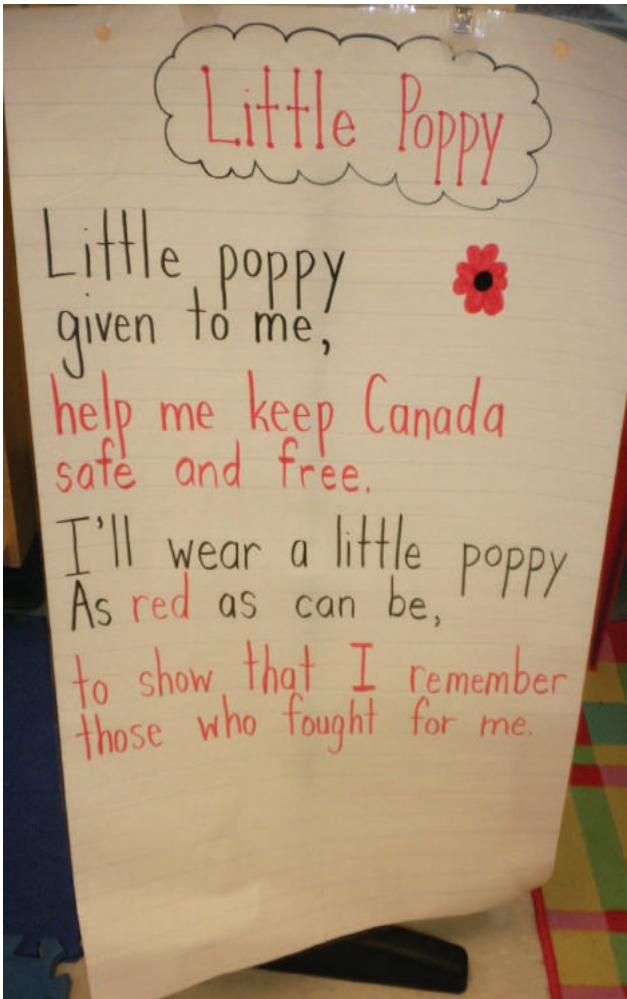 Little Poppy
Little poppy
given to me,
help me keep Canada
safe and free.
I'll wear a little poppy
As red as can be,
to show that I remember
those who fought for me.